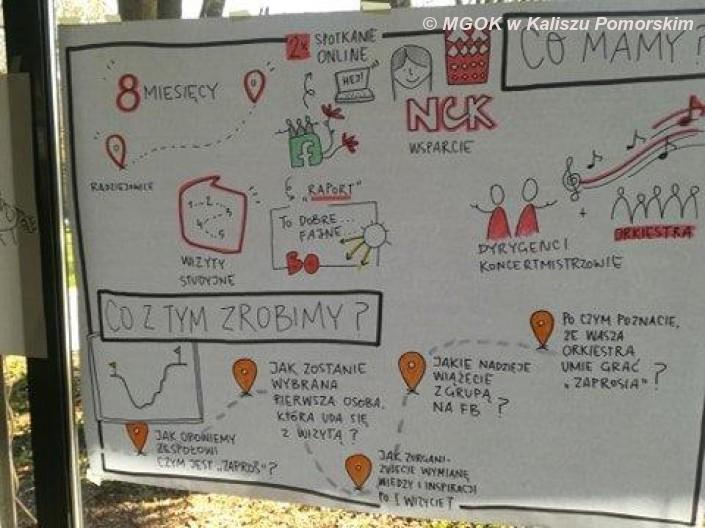 © MGOK w Kaliszu Pomorskim
2x SPOTKANIE
ONLINE
CO MAMY?
8 MIESIĘCY
HEJ!
NCK
WSPARCIE
RADZIEJOWICE
f
"RAPORT"
1 2
3
4
5
TO DOBRE...
FAJNE...
BO
WIZYTY
STUDYJNE
+
ORKIESTRA
DYRYGENCI
KONCERTMISTRZOWIE
CO Z TYM ZROBIMY?
JAK OPOWIEMY
ZESPOŁOWI
CZYM JEST „ZAPROŚ"?
JAK ZOSTANIE
WYBRANA
PIERWSZA OSOBA,
KTÓRA UDA SIĘ
Z WIZYTĄ?
JAK ZORGANI-
ZUJECIE WYMIANĘ
WIEDZY I INSPIRACJI
PO I WIZYCIE?
JAKIE NADZIEJE
WIĄŻECIE
Z GRUPĄ
NA FB?
PO CZYM POZNACIE,
ŻE WASZA
ORKIESTRA
UMIE GRAĆ
„ZAPROSIA"?